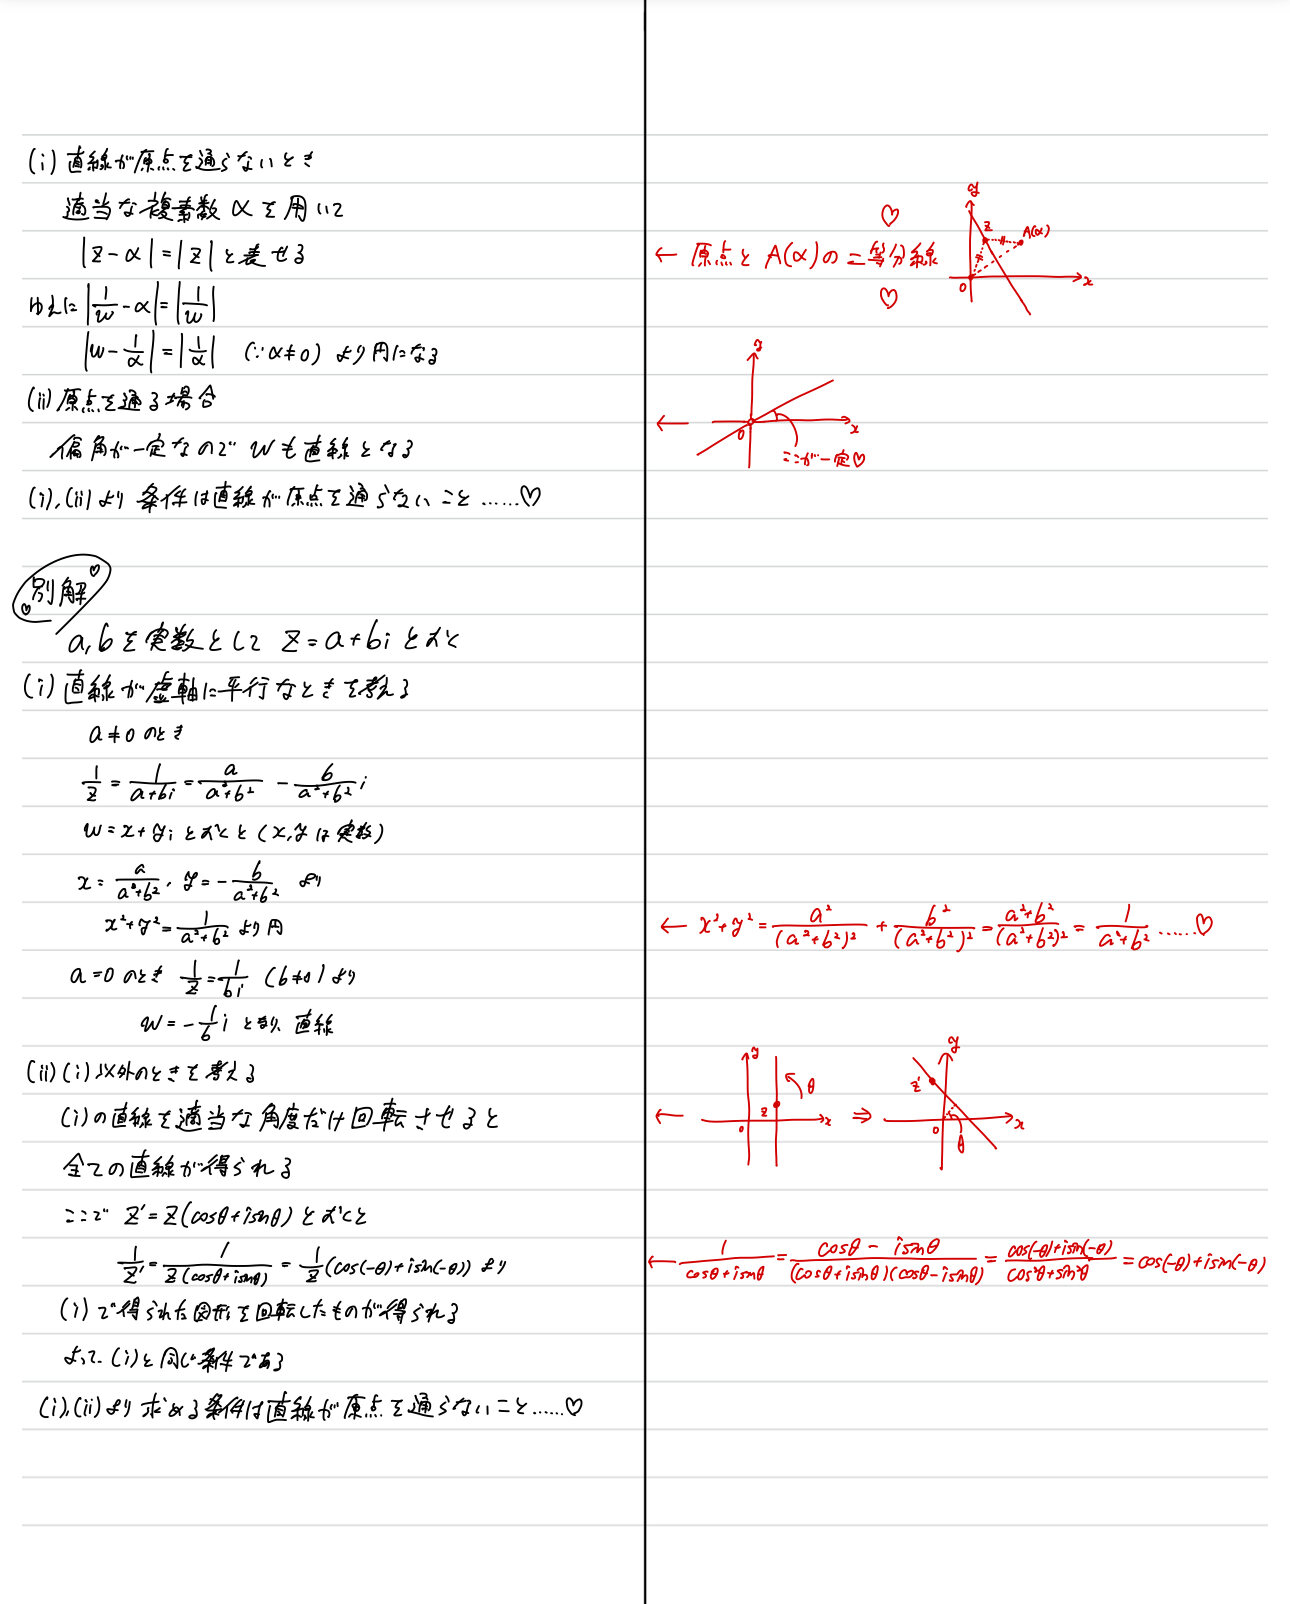 (i) 直線が原点を通らないとき
適当な複素数 α を用いて
|z-α|=|z| と表せる
← 原点と A(α)の二等分線
♡
♡
y
z
A(α)
0
x
ゆえに |1/w - α|=|1/w|
|w - 1/α|=|1/α| (∵α≠0) より円になる
(ii) 原点を通る場合
偏角が一定なので w も直線となる
←
y
0
x
ここが一定♡
(i),(ii)より 条件は直線が原点を通らないこと……♡
別解
♡
♡
a,b を実数として z=a+bi とおく
(i) 直線が虚軸に平行なときを考える
a≠0 のとき
1/z = 1/(a+bi) = a/(a²+b²) - b/(a²+b²) i
w=x+yi とおくと (x,yは実数)
x= a/(a²+b²), y=- b/(a²+b²) より
x²+y²= 1/(a²+b²) より円
← x²+y² = a²/(a²+b²)² + b²/(a²+b²)² = (a²+b²)/(a²+b²)² = 1/(a²+b²) ……♡
a=0 のとき 1/z = 1/bi (b≠0) より
w=- 1/b i となり、直線
(ii) (i)以外のときを考える
(i)の直線を適当な角度だけ回転させると
全ての直線が得られる
←
y
θ
z
0
x
⇒
y
z'
0
θ
x
ここで z'=z(cosθ+isinθ) とおくと
1/z' = 1/(z(cosθ+isinθ)) = 1/z (cos(-θ)+isin(-θ)) より
← 1/(cosθ+isinθ) = (cosθ-isinθ)/((cosθ+isinθ)(cosθ-isinθ)) = (cos(-θ)+isin(-θ))/(cos²θ+sin²θ) = cos(-θ)+isin(-θ)
(i)で得られた図形を回転したものが得られる
よって、(i)と同じ条件である
(i),(ii)より 求める条件は直線が原点を通らないこと……♡